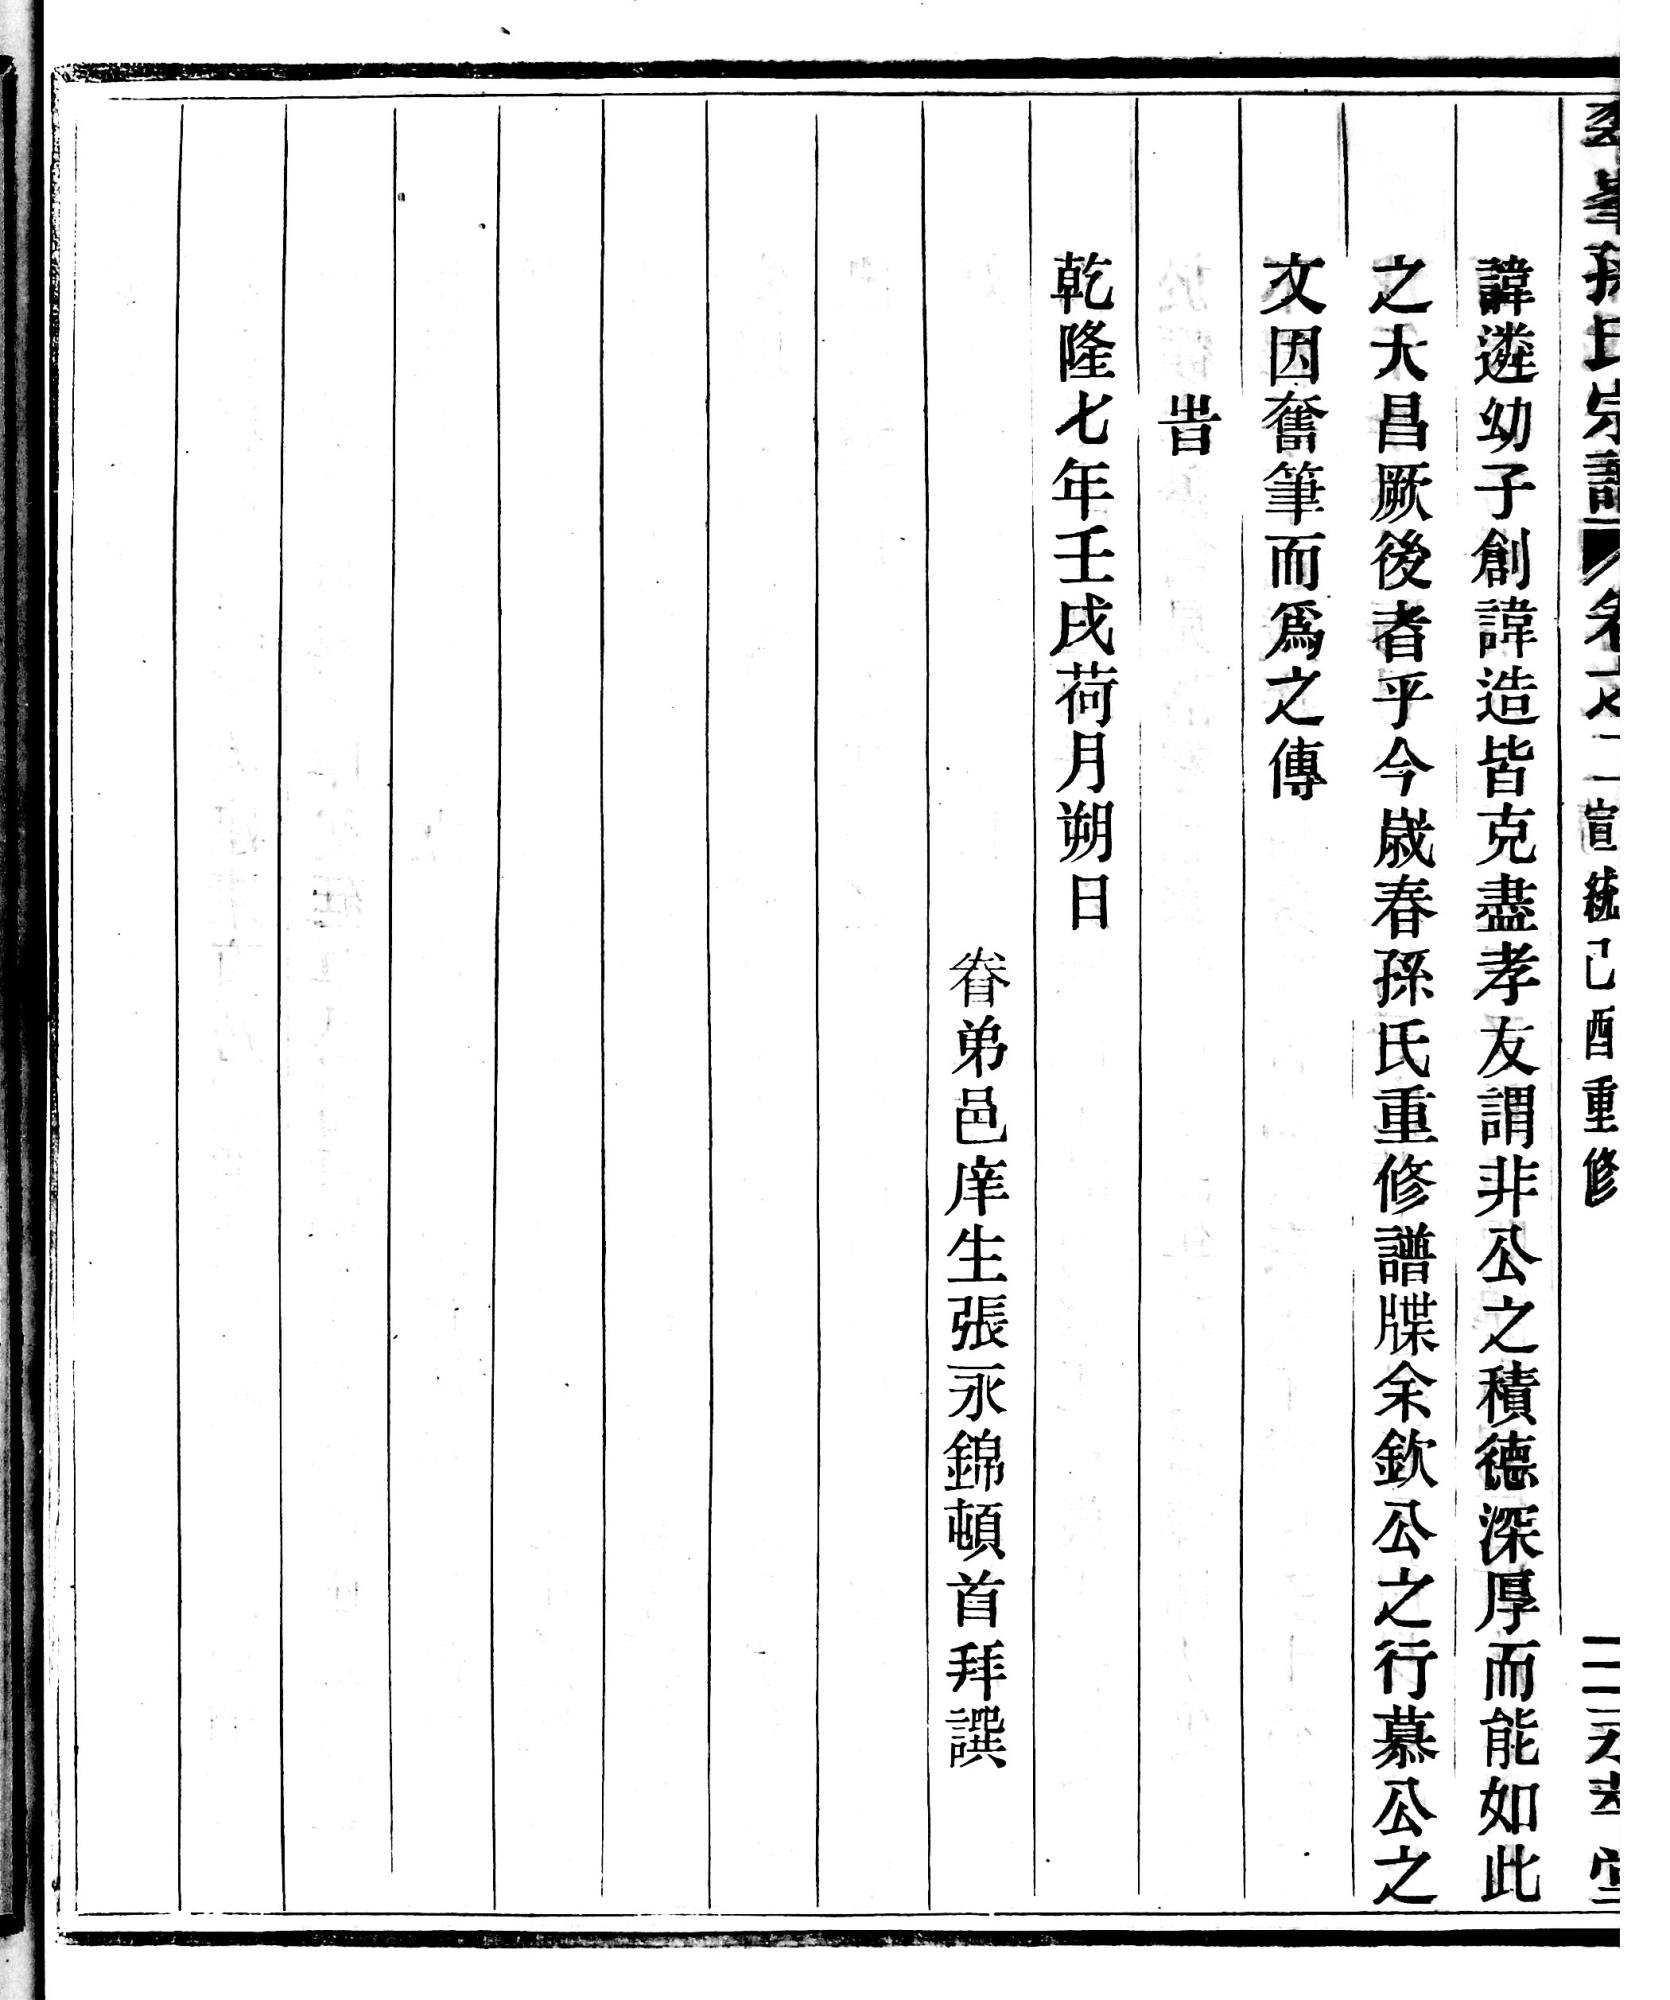 孫氏宗譜 卷之二 宣統己酉重修 三 永孝堂
諱遴幼子創諱造皆克盡孝友謂非公之積德深厚而能如此
之大昌厥後者乎今歲春孫氏重修譜牒余欽公之行慕公之
文因奮筆而爲之傳
旹
乾隆七年壬戌荷月朔日
眷弟邑庠生張永錦頓首拜譔